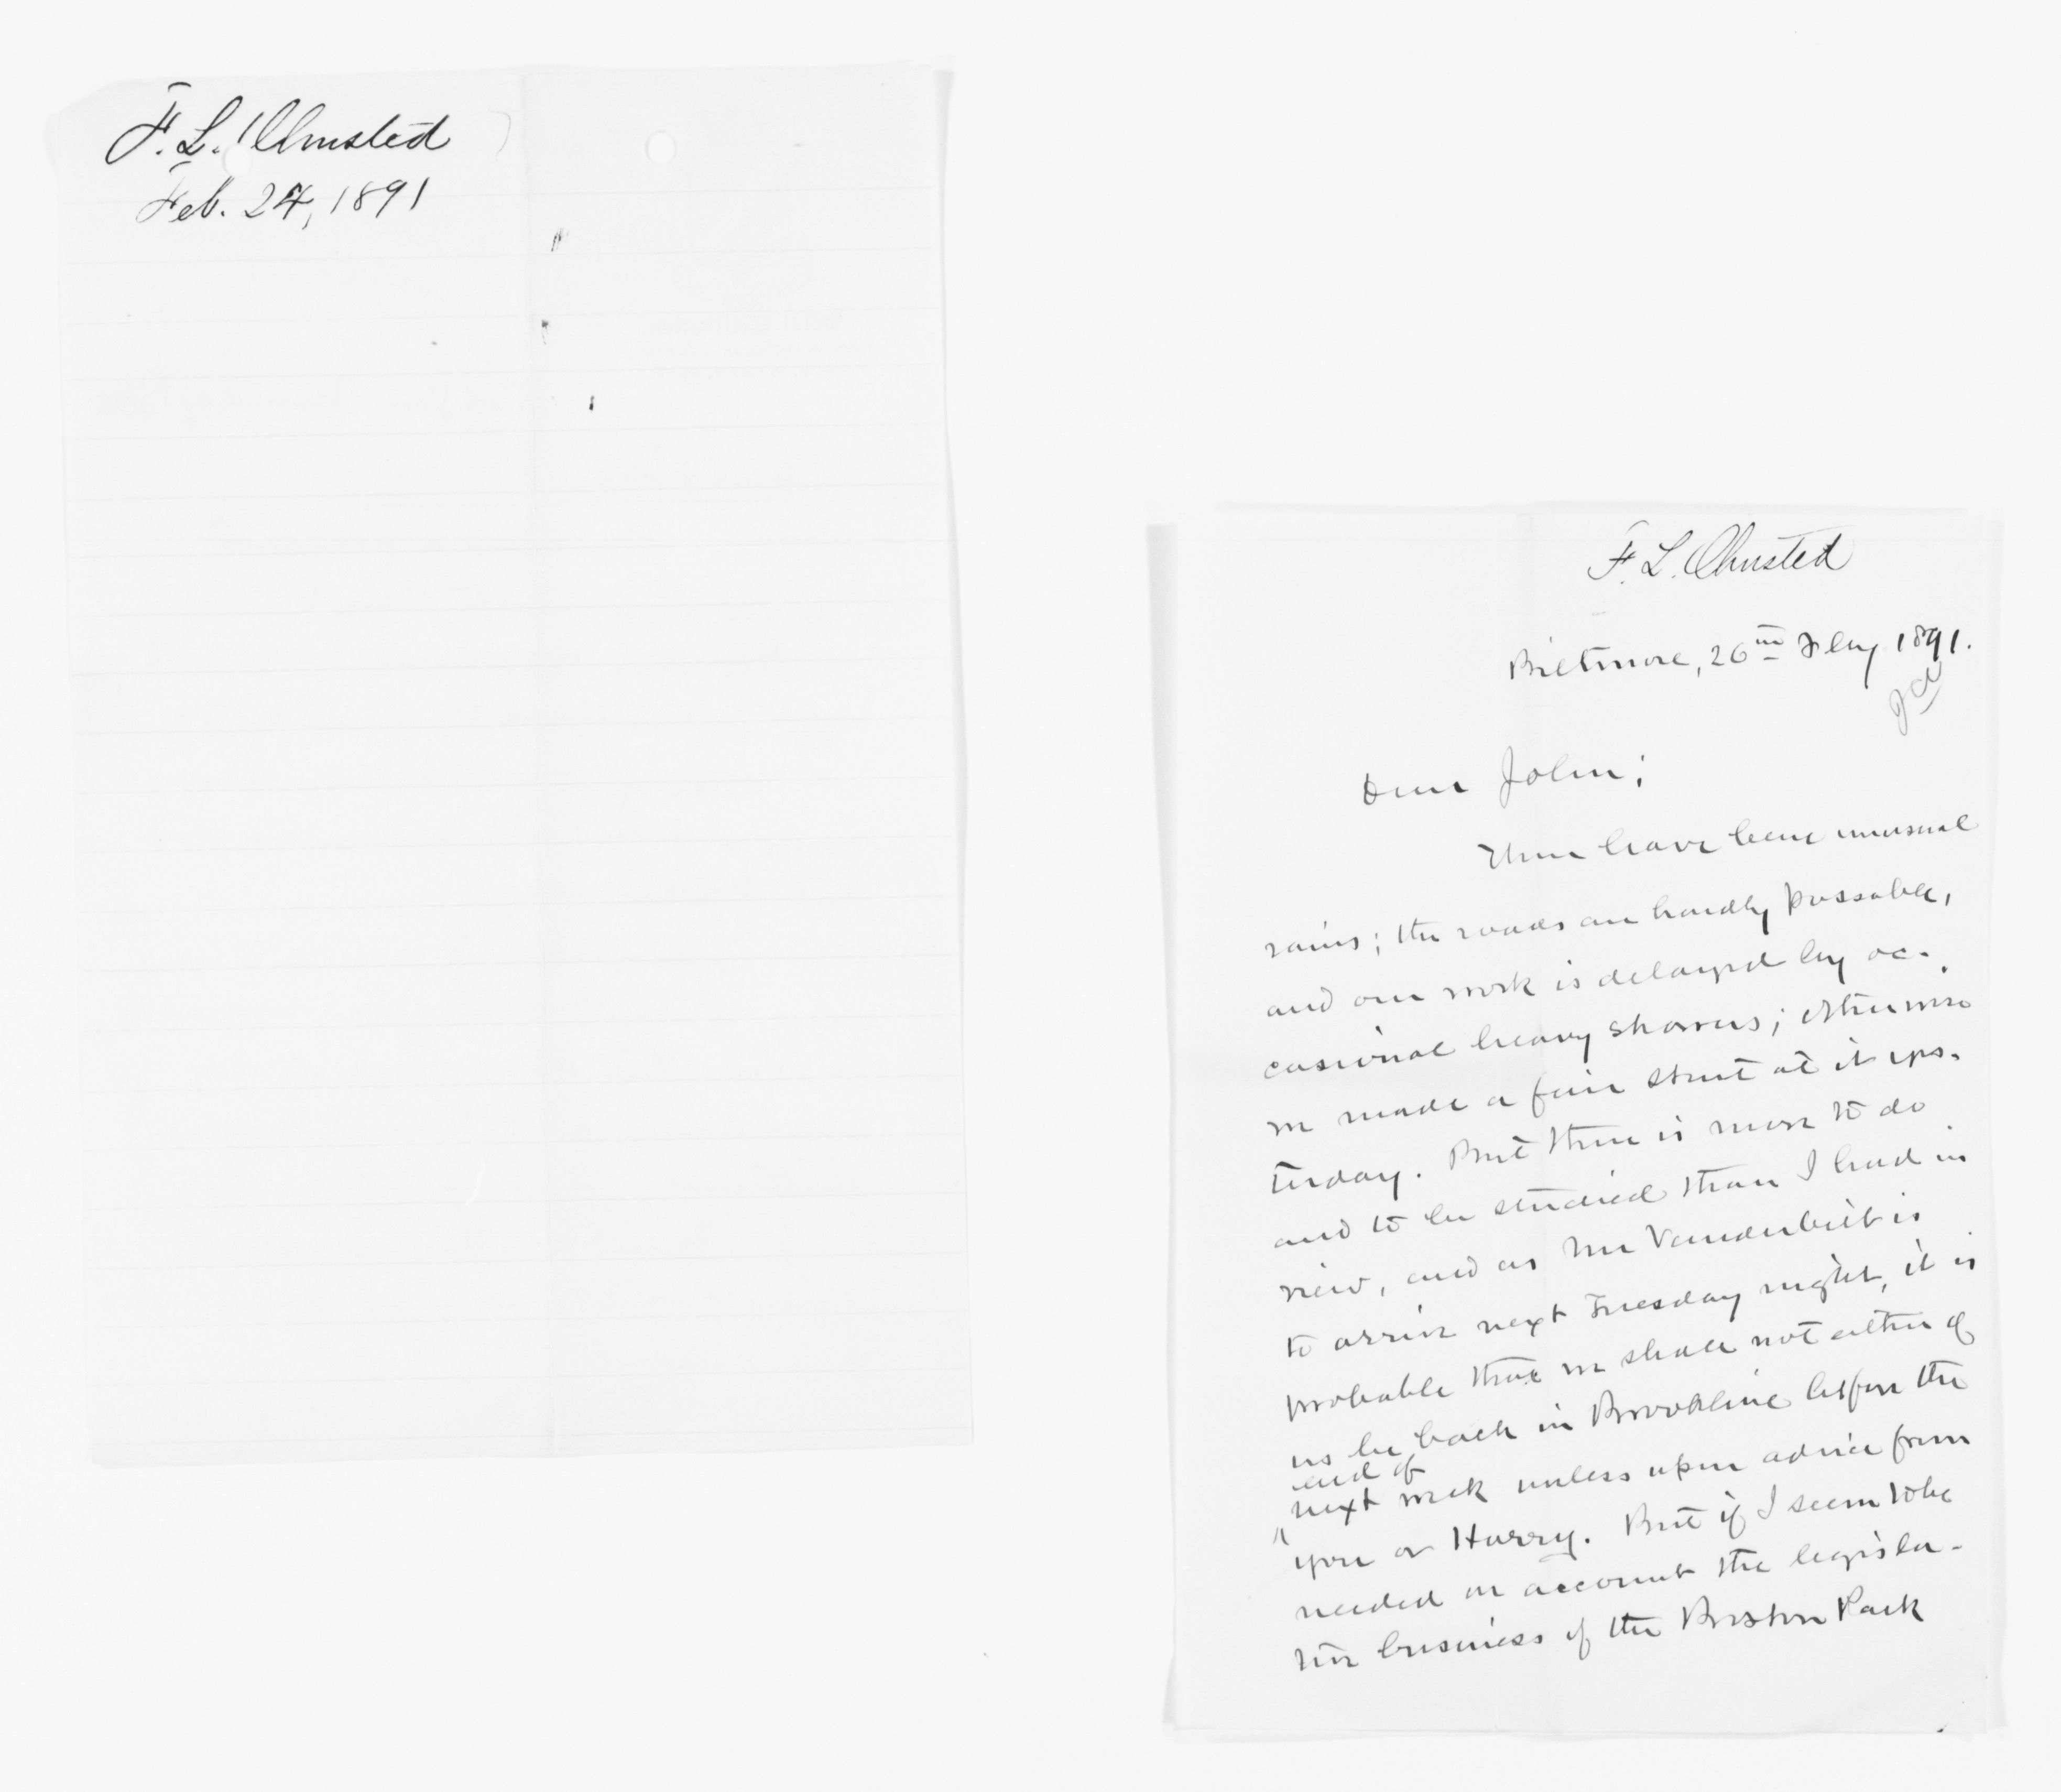 F. L. Olmsted
Feb. 24, 1891
F. L. Olmsted
Biltmore, 26th Feby 1891.
Dear John;
There have been unusual
rains; the roads are hardly passable,
and our work is delayed by oc-
casional heavy showers; otherwise
we made a fair start at it yes-
terday. But there is more to do
and to be studied than I had in
view, and as Mr Vanderbilt is
to arrive next Tuesday night, it is
probable that we shall not either of
us be back in Brookline before the
end of
next week unless upon advice from
you or Harry. But if I seem to be
needed on account the legisla-
tive business of the Boston Park